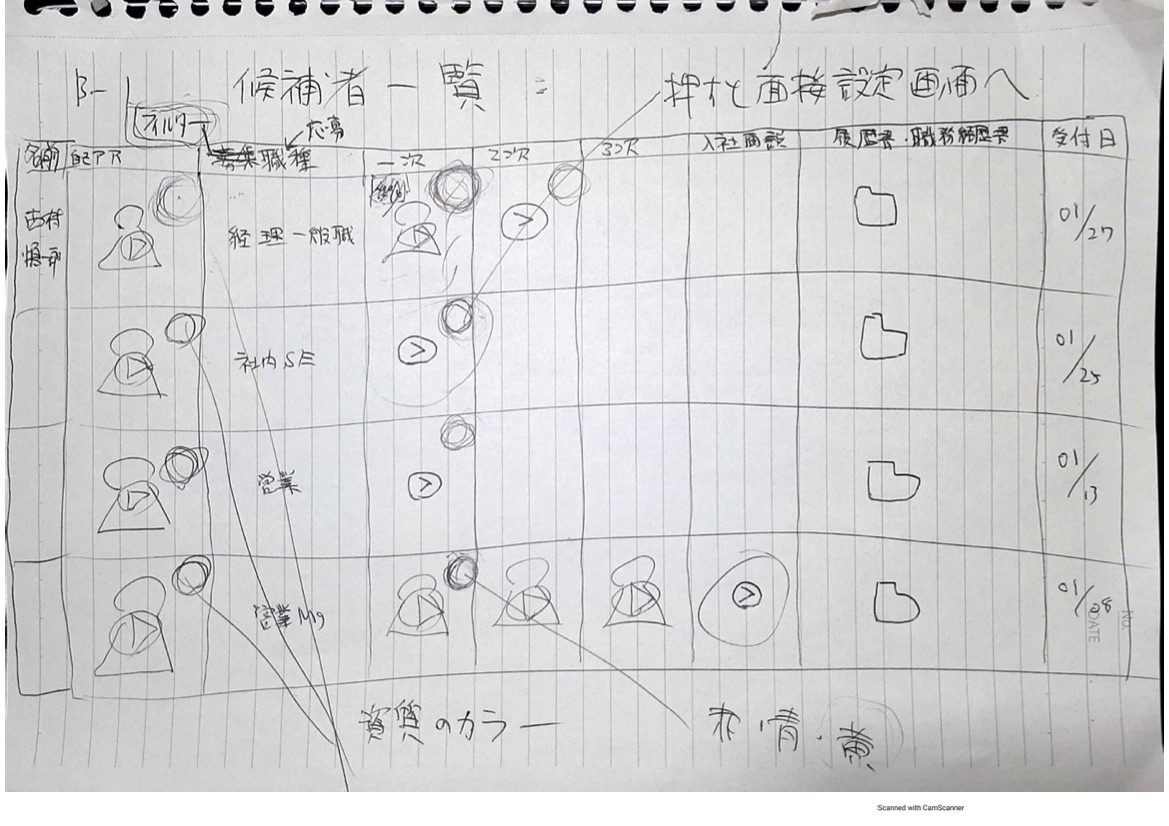 B-1 候補者一覧: 押すと面接設定画面へ
フィルター
応募
名前 自己アピ 募集職種 一次 2次 3次 入社面談 履歴書・職務経歴書 受付日
経理一般職 01/27
社内SE 01/25
営業 01/13
営業Mg 01/28
資質のカラー 赤・青・黄
NO.
DATE
Scanned with CamScanner